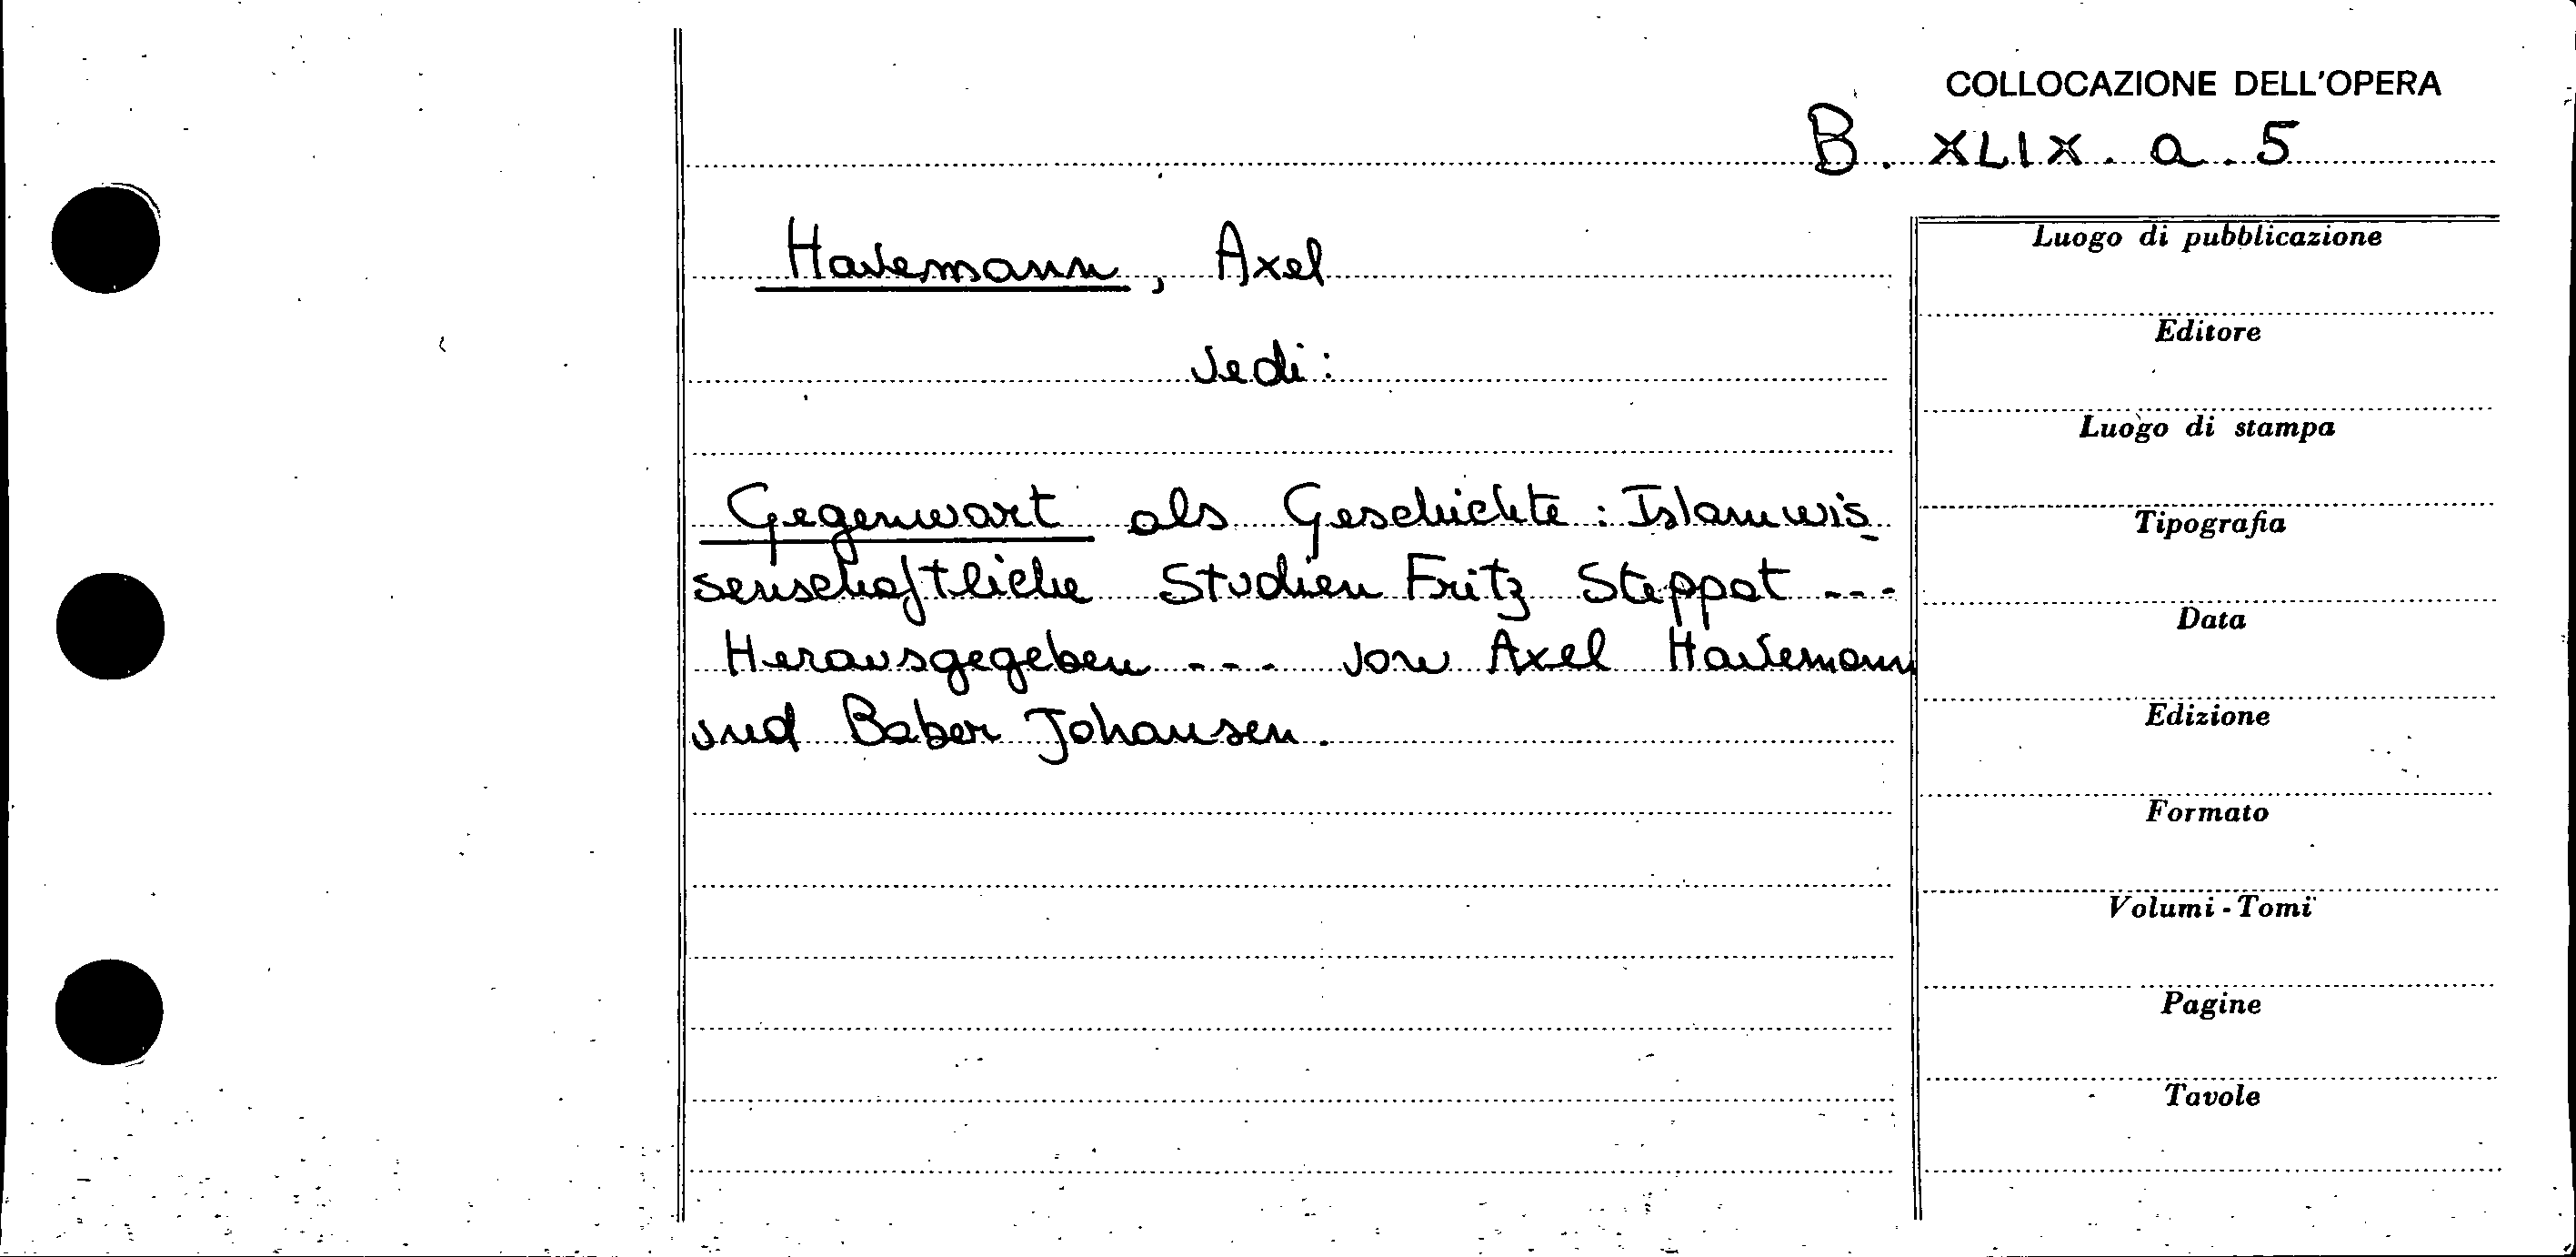 COLLOCAZIONE DELL'OPERA
B. XLIX. a. 5
Havemann, Axel
vedi:
Gegenwart als Geschichte: Islamwis-
senschaftliche Studien Fritz Steppat ---
Herausgegeben --- von Axel Havemann
und Baber Johansen.
Luogo di pubblicazione
Editore
Luogo di stampa
Tipografia
Data
Edizione
Formato
Volumi - Tomi
Pagine
Tavole